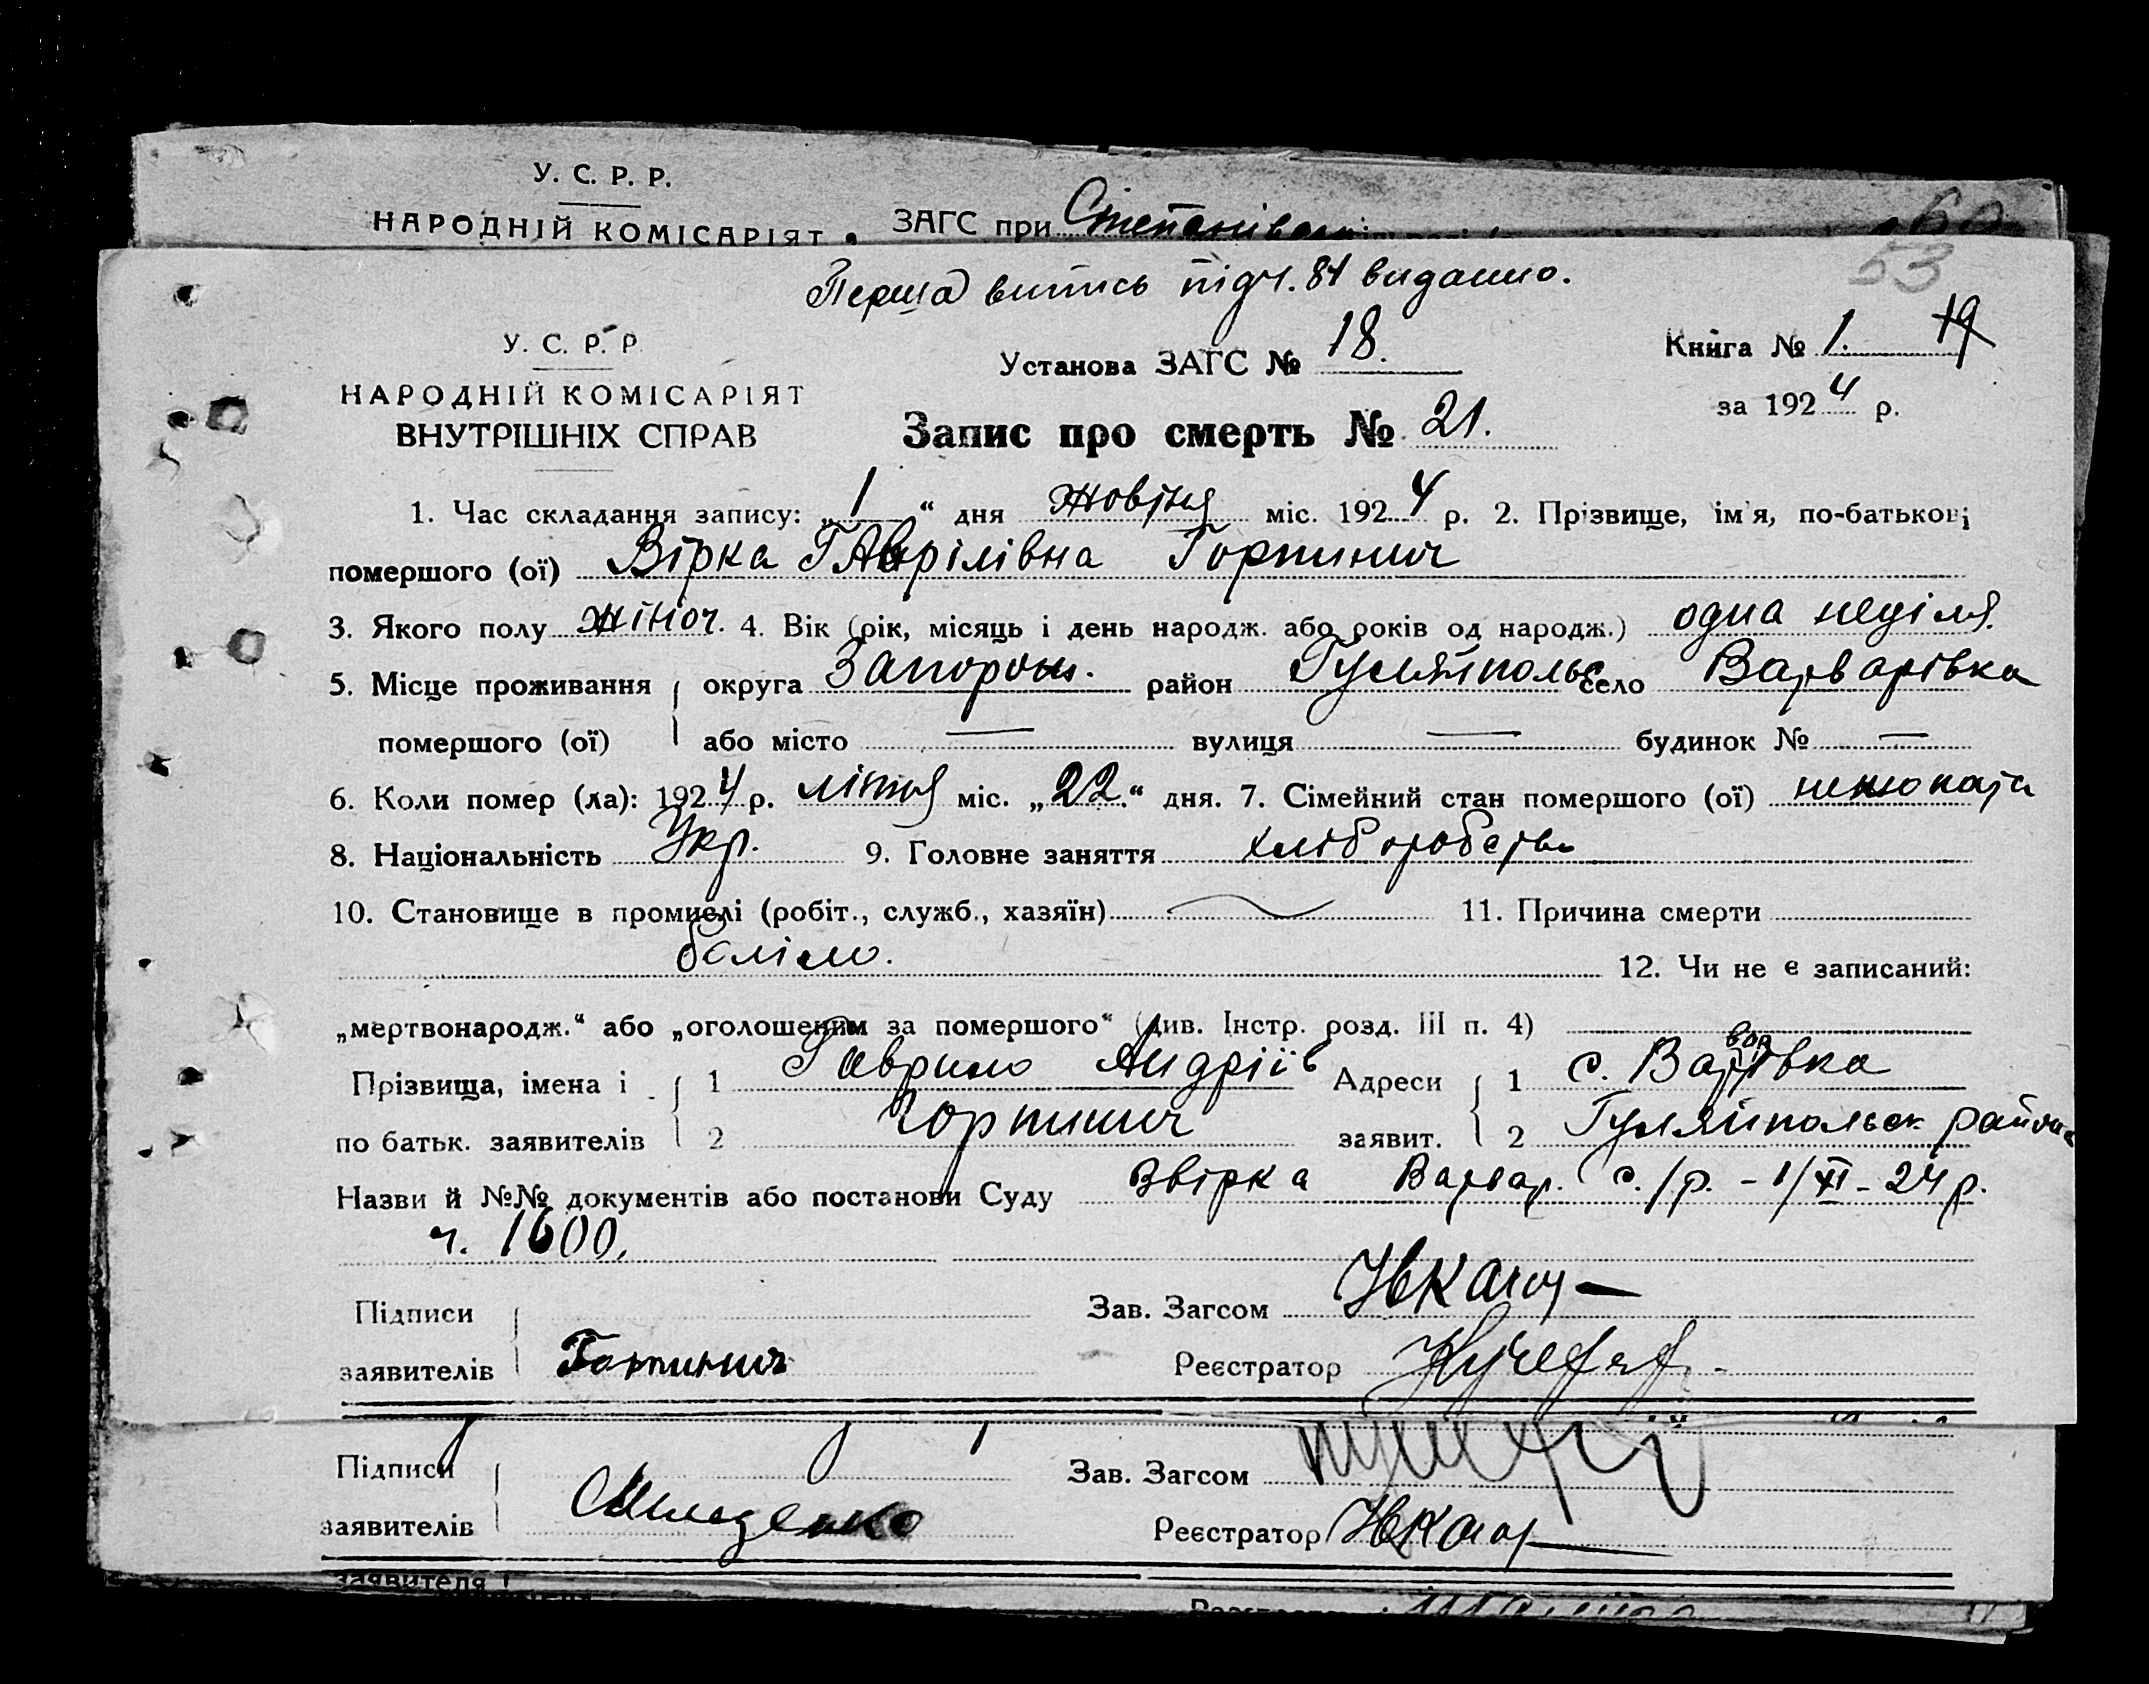 У. С. Р. Р.
НАРОДНІЙ КОМІСАРІЯТ ЗАГС при
60
53
Перша випись під ч. 84 видано.
У. С. Р. Р.
НАРОДНІЙ КОМІСАРІЯТ
ВНУТРІШНІХ СПРАВ
Установа ЗАГС № 18.
Книга № 1. 19
за 1924 р.
Запис про смерть № 21.
1. Час складання запису: „1“ дня Жовтня міс. 1924 р. 2. Прізвище, ім'я, по-батькові
помершого (ої) Вірка Гаврілівна Гортинич
3. Якого полу жіноч. 4. Вік (рік, місяць і день народж. або років од народж.) одна неділя.
5. Місце проживання округа Запорож. район Гуляйпольс село Варварівка
помершого (ої) або місто — вулиця — будинок № —
6. Коли помер (ла): 1924 р. міс. „22.“ дня. 7. Сімейний стан помершого (ої)
8. Національність Укр. 9. Головне заняття
10. Становище в промислі (робіт., служб., хазяїн) 11. Причина смерти
12. Чи не є записаний:
„мертвонародж.“ або „оголошеним за помершого“ (див. Інстр. розд. III п. 4)
Прізвища, імена і 1 Гаврило Андріїв Адреси 1 с. Варварівка
по батьк. заявителів 2 Гортинич заявит. 2 Гуляйпольск района
Назви й №№ документів або постанови Суду Звірка Варвар. с./р. - 1/XI - 24 р.
ч. 1600.
Підписи
заявителів
Зав. Загсом
Реєстратор
Підписи
заявителів
Зав. Загсом
Реєстратор
заявителя